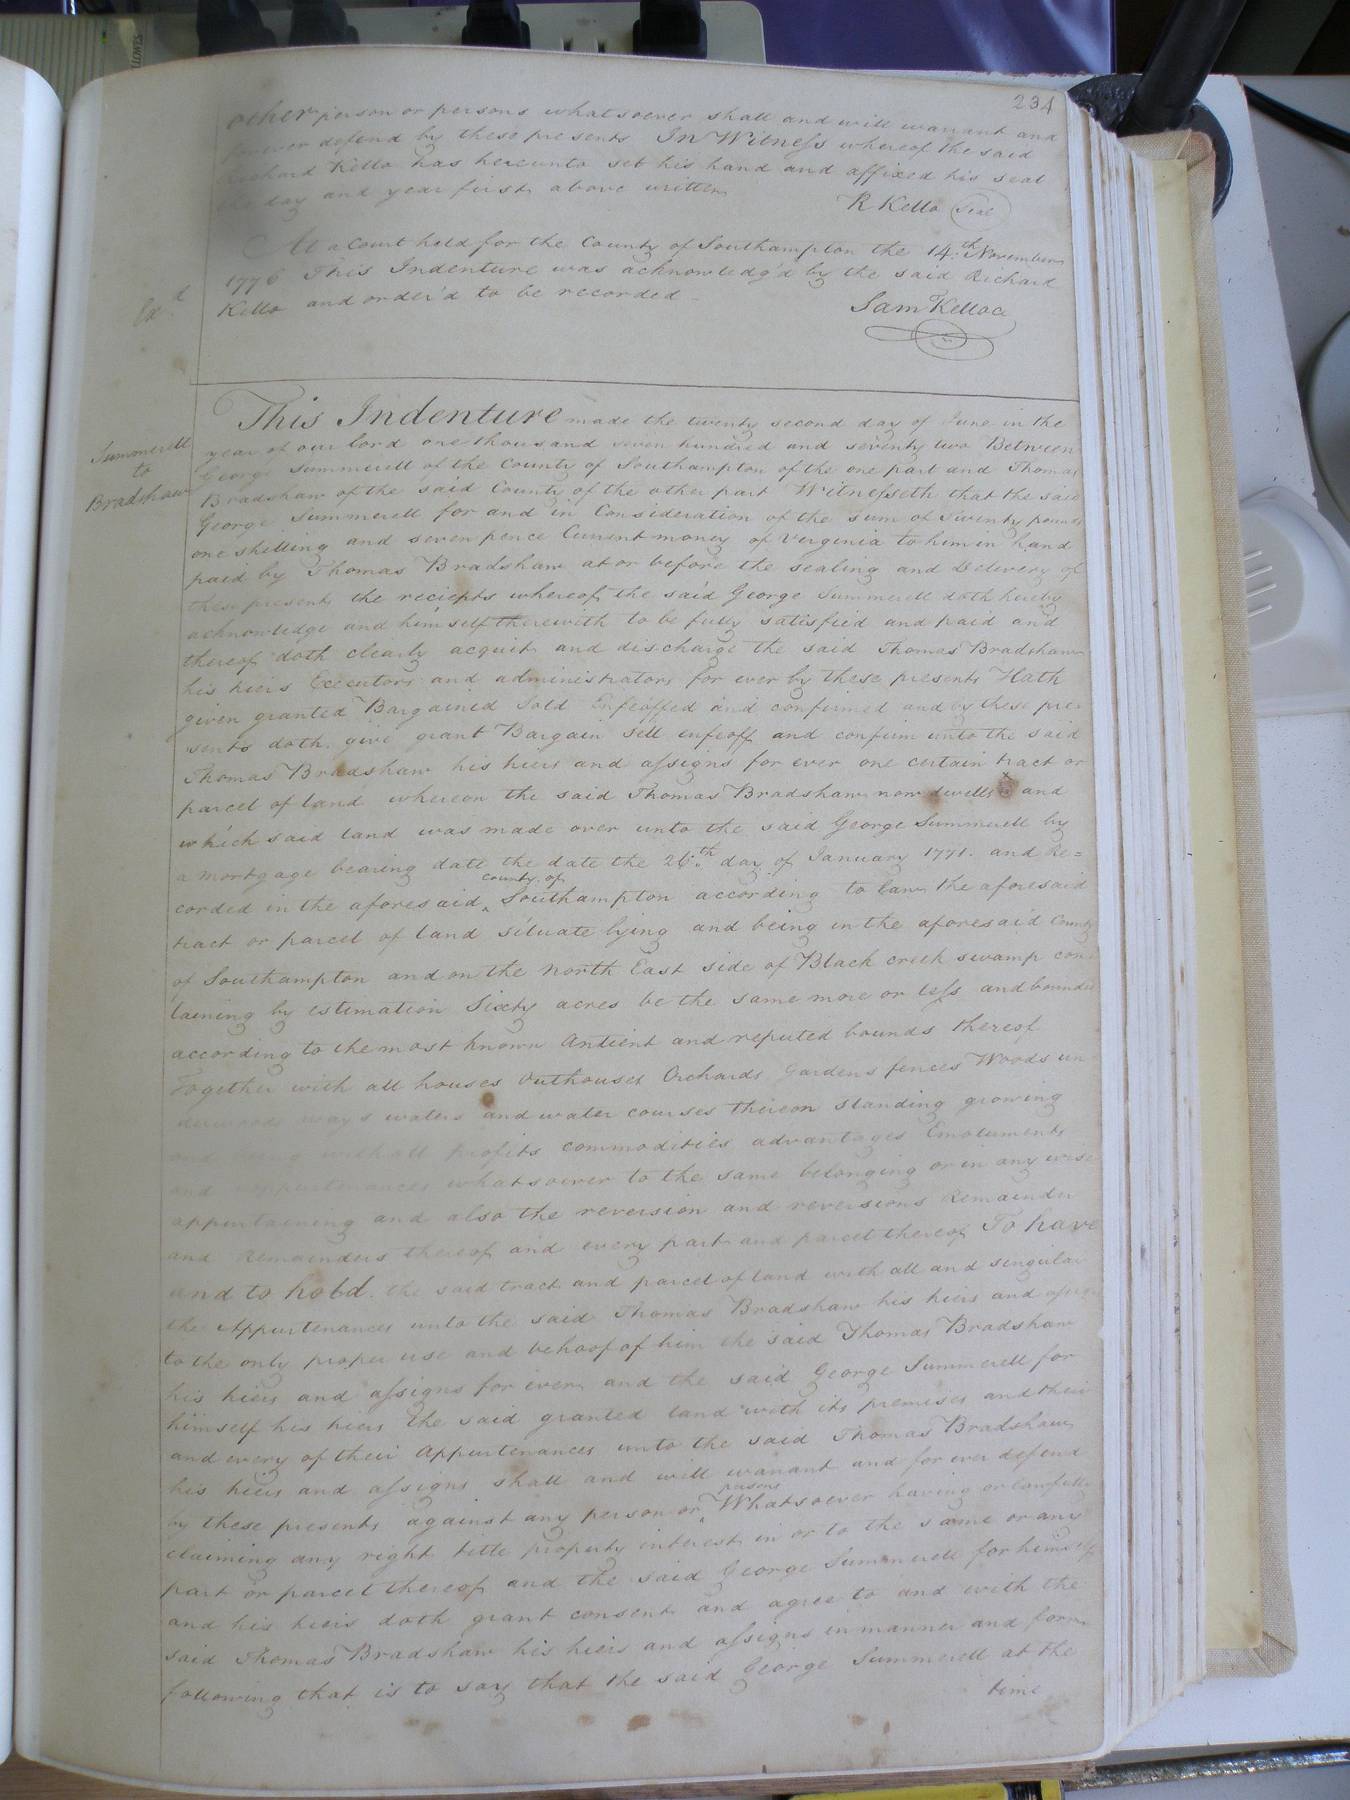 234
other person or persons whatsoever shall and will warrant and
forever defend by these presents In Witneſs whereof the said
Richard Kello has hereunto set his hand and affixed his seal
the day and year first above written
R Kello Seal
At a Court held for the County of Southampton the 14.th November
1776 This Indenture was acknowledg'd by the said Richard
Kello and order'd to be recorded
Exd
Sam Kello
Summerell
to
Bradshaw
This Indenture made the twenty second day of June in the
year of our lord one thousand seven hundred and seventy two Between
George Summerell of the County of Southampton of the one part and Thomas
Bradshaw of the said County of the other part Witneſseth that the said
George Summerell for and in Consideration of the sum of pounds
one shilling and seven pence Current money of Verginia to him in hand
paid by Thomas Bradshaw at or before the sealing and Delivery of
these presents the reciepts whereof the said George Summerell doth hereby
acknowledge and himself therewith to be fully satisfied and paid and
thereof doth clearly acquit and discharge the said Thomas Bradshaw
his heirs Executors and administrators for ever by these presents Hath
given granted Bargained Sold Enfeoffed and confirmed and by these pre
sents doth give grant Bargain sell enfeoff and confirm unto the said
Thomas Bradshaw his heirs and aſsigns for ever one certain tract or
parcel of land whereon the said Thomas Bradshaw now dwells and
which said land was made over unto the said George Summerell by
a mortgage bearing date the date the 26.th day of January 1771. and Re=
corded in the aforesaid county of Southampton according to law the aforesaid
tract or parcel of land situate lying and being in the aforesaid County
of Southampton and on the North East side of Black creek swamp con
taining by estimation Sixty acres be the same more or leſs and bounded
according to the most known Antient and reputed bounds thereof
Together with all houses Outhouses Orchards Gardens fences Woods un
derwoods ways waters and water courses thereon standing growing
and being with all profits commodities advantages Emoluments
and appurtenances whatsoever to the same belonging or in any wise
appurtaining and also the reversion and reversions Remainder
and Remainders thereof and every part and parcel thereof To have
and to hold. the said tract and parcel of land with all and singular
the Appurtenances unto the said Thomas Bradshaw his heirs and aſsigns
to the only proper use and behoof of him the said Thomas Bradshaw
his heirs and aſsigns for ever and the said George Summerell for
himself his heirs the said granted land with its premises and their
and every of their Appurtenances unto the said Thomas Bradshaw
his heirs and aſsigns shall and will warrant and for ever defend
by these presents against any person or persons Whatsoever having or lawfully
claiming any right title property interest in or to the same or any
part or parcel thereof and the said George Summerell for himself
and his heirs doth grant consent and agree to and with the
said Thomas Bradshaw his heirs and aſsigns in manner and form
following that is to say that the said George Summerell at the
time